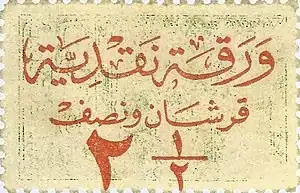 ورقة نقدية
قرشان ونصف
٢ ١/٢